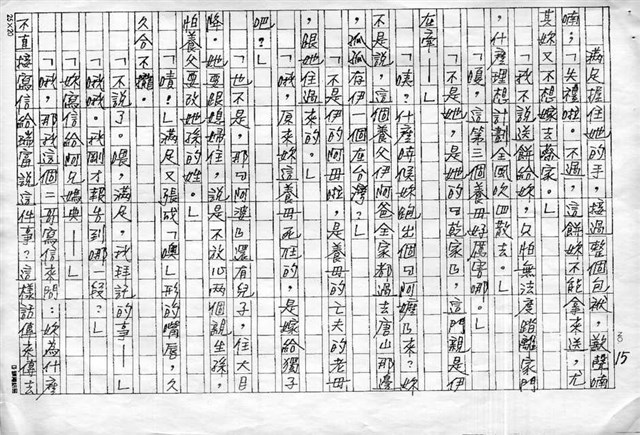 滿足握住她的手，接過整個包袱，歉聲喃
喃；「失禮啦。不過，這餅妳不能拿來送，尤
其妳又不想嫁去蕭家。」
「我不說送餅給妳，又怕無法度踏離家門
，什麼理想計劃全風吹四散去。」
「嗄，這第三個養母好厲害哪。」
「不是她，是她的『乾家』，這門親是伊
在牽——」
「噢？什麼時候妳跑出個『阿嬤』來？妳
不是說，這個養父伊阿爸全家都過去唐山那邊
，孤孤存伊一個在台灣？」
「不是伊的阿母啦，是養母的亡夫的老母
，跟她住過來的。」
「哦，原來妳這養母死住的，是嫁給獨子
吧？」
「也不是，那『阿婆』還有兒子，住大目
降。她要跟媳婦住，說是不放心兩個親生孫，
怕養父要改她孫的姓。」
「嘖！」滿足又張成「噢」形的嘴唇，久
久合不攏。
「不說了。喂，滿足，我拜託的事——」
「哦哦。我剛才報告到哪一段？」
「妳寫信給阿兄媽典——」
「哦，那我這個二哥寫信來問：妳為什麼
不直接寫信給瑞富說這件事？這樣訪傳來傳去
15
25×20